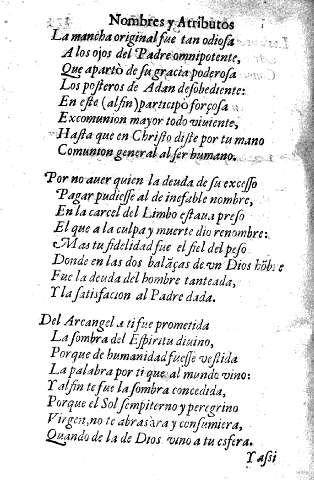 Nombres y Atributos
La mancha original fue tan odiosa
A los ojos del Padre omnipotente,
Que apartò de su gracia poderosa
Los posteros de Adan desobediente:
En este (alfin) participò forçosa
Excomunion mayor todo viuiente,
Hasta que en Christo diste por tu mano
Comunion general al ser humano.
Por no auer quien la deuda de su excesso
Pagar pudiesse al de inefable nombre,
En la carcel del Limbo estaua preso
El que a la culpa y muerte dio renombre:
Mas tu fidelidad fue el fiel del peso
Donde en las dos balãças de vn Dios hõbre
Fue la deuda del hombre tanteada,
Y la satisfacion al Padre dada.
Del Arcangel a ti fue prometida
La sombra del Espiritu diuino,
Porque de humanidad fuesse vestida
La palabra por ti que al mundo vino:
Y alfin te fue la sombra concedida,
Porque el Sol sempiterno y peregrino
Virgen, no te abrasara y consumiera,
Quando de la de Dios vino a tu esfera.
Y assi